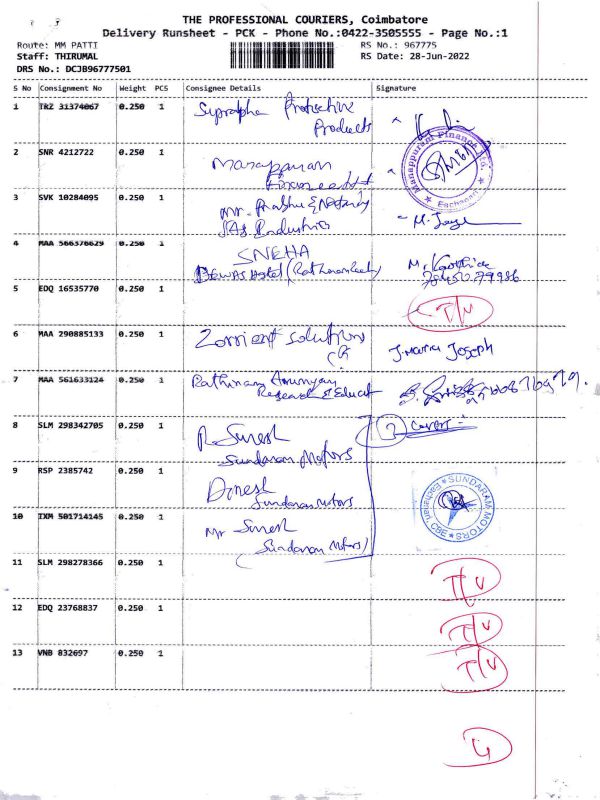 THE PROFESSIONAL COURIERS, Coimbatore
Delivery Runsheet - PCK - Phone No.:0422-3505555 - Page No.:1
Route: MM PATTI
RS No.: 967775
Staff: THIRUMAL
RS Date: 28-Jun-2022
DRS No.: DCJB96777501
S No Consignment No Weight PCS Consignee Details Signature
1 TRZ 31374067 0.250 1 Protective
Products
2 SNR 4212722 0.250 1
Manappuram Finance Ltd.
3 SVK 10284095 0.250 1 Mr. Prabhu
Industries
4 MAA 566376629 0.250 1 SNEHA
Hostel
5 EDQ 16535770 0.250 1 T/V
6 MAA 290885133 0.250 1 Zorrient Solutions J. Maria Joseph
7 MAA 561633124 0.250 1 Rathinam
Research & Educat
8 SLM 298342705 0.250 1 R. Suresh 3 Covers
Sundaram Motors
9 RSP 2385742 0.250 1 Dinesh
Sundaram Motors
SUNDARAM MOTORS
CBE
10 TXM 501714145 0.250 1 Mr Suresh
(Sundaram Motors)
11 SLM 298278366 0.250 1 T/V
12 EDQ 23768837 0.250 1 T/V
13 VNB 832697 0.250 1 T/V